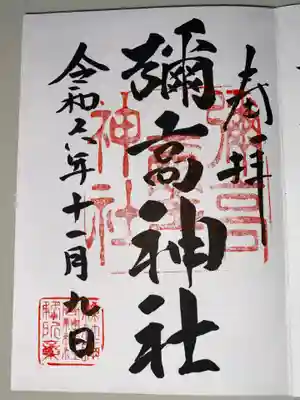 奉拝
彌高神社
令和六年十一月九日
彌高
神社